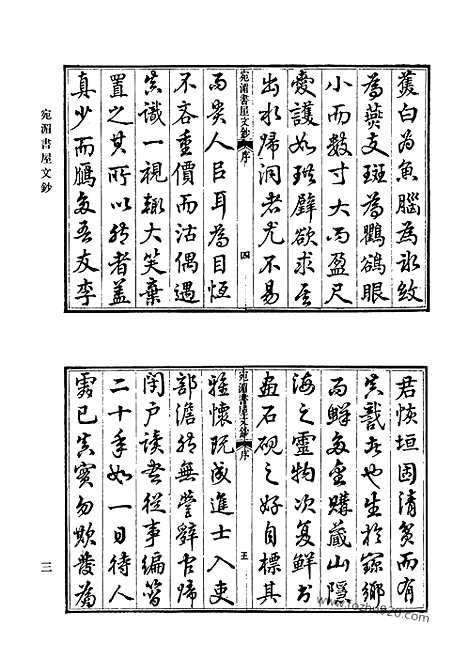 舊白為魚腦為冰紋
為燕支斑為鸜鵒眼
小而數寸大而盈尺
愛護如珙璧欲求其
出水歸洞者尤不易
宛湄書屋文鈔 序 四
而貴人臣耳為目恆
不吝重價而沽偶遇
真識一視輒大笑棄
置之其所以然者蓋
真少而鴈多吾友李
君恢垣固清貧而有
真識者也生於窮鄉
而鮮多金購藏山隱
海之靈物次复鮮書
畫石硯之好自標其
宛湄書屋文鈔 序 五
雅懷既成進士入吏
部澹然無營辭官歸
閉户读書從事編簡
二十年如一日待人
處已真實勿欺發為
宛湄書屋文鈔
三
www.fozhu920.com